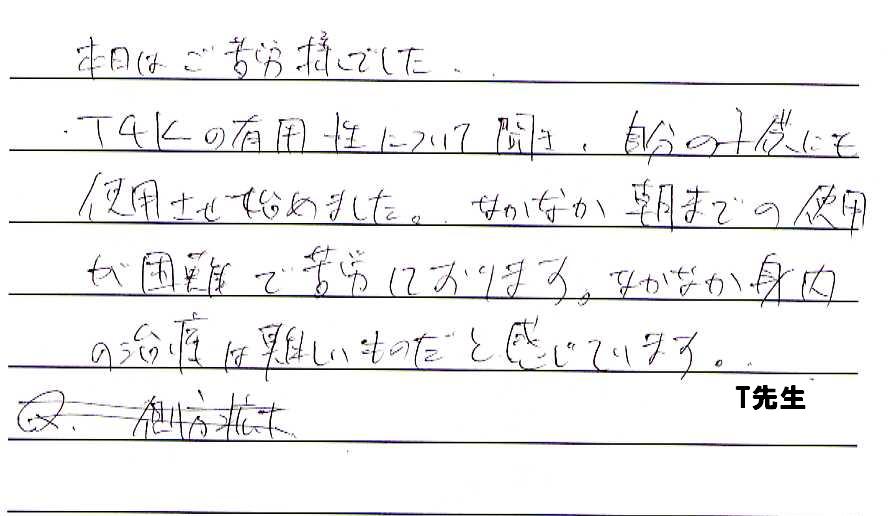 本日はご苦労様でした.
T4Kの有用性について聞き、自分の子供にも
使用させ始めました。なかなか朝までの使用
が困難で苦労しております。なかなか身内
の治療は難しいものだと感じています。
T先生
Q.